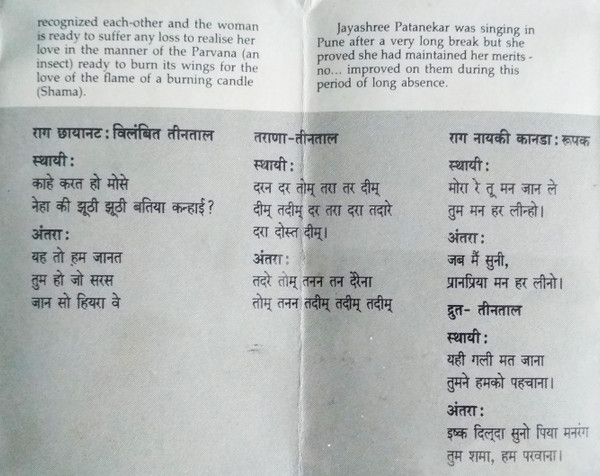 recognized each-other and the woman
is ready to suffer any loss to realise her
love in the manner of the Parvana (an
insect) ready to burn its wings for the
love of the flame of a burning candle
(Shama).
Jayashree Patanekar was singing in
Pune after a very long break but she
proved she had maintained her merits -
no... improved on them during this
period of long absence.
राग छायानट : विलंबित तीनताल
स्थायी :
काहे करत हो मोसे
नेहा की झूठी झूठी बतिया कन्हाई ?
अंतरा :
यह तो हम जानत
तुम हो जो सरस
जान सो हियरा वे
तराणा-तीनताल
स्थायी :
दरन दर तोम् तरा तर दीम्
दीम् तदीम् दर तरा दरा तदारे
दरा दोस्त दीम्।
अंतरा :
तदरे तोम् तनन तन देरेना
तोम् तनन तदीम् तदीम् तदीम्
राग नायकी कानडा : रूपक
स्थायी :
मोरा रे तू मन जान ले
तुम मन हर लीन्हो।
अंतरा :
जब मैं सुनी,
प्रानप्रिया मन हर लीनो।
द्रुत- तीनताल
स्थायी :
यही गली मत जाना
तुमने हमको पहचाना।
अंतरा :
इष्क दिल्दा सुनो पिया मनरंग
तुम शमा, हम परवाना।